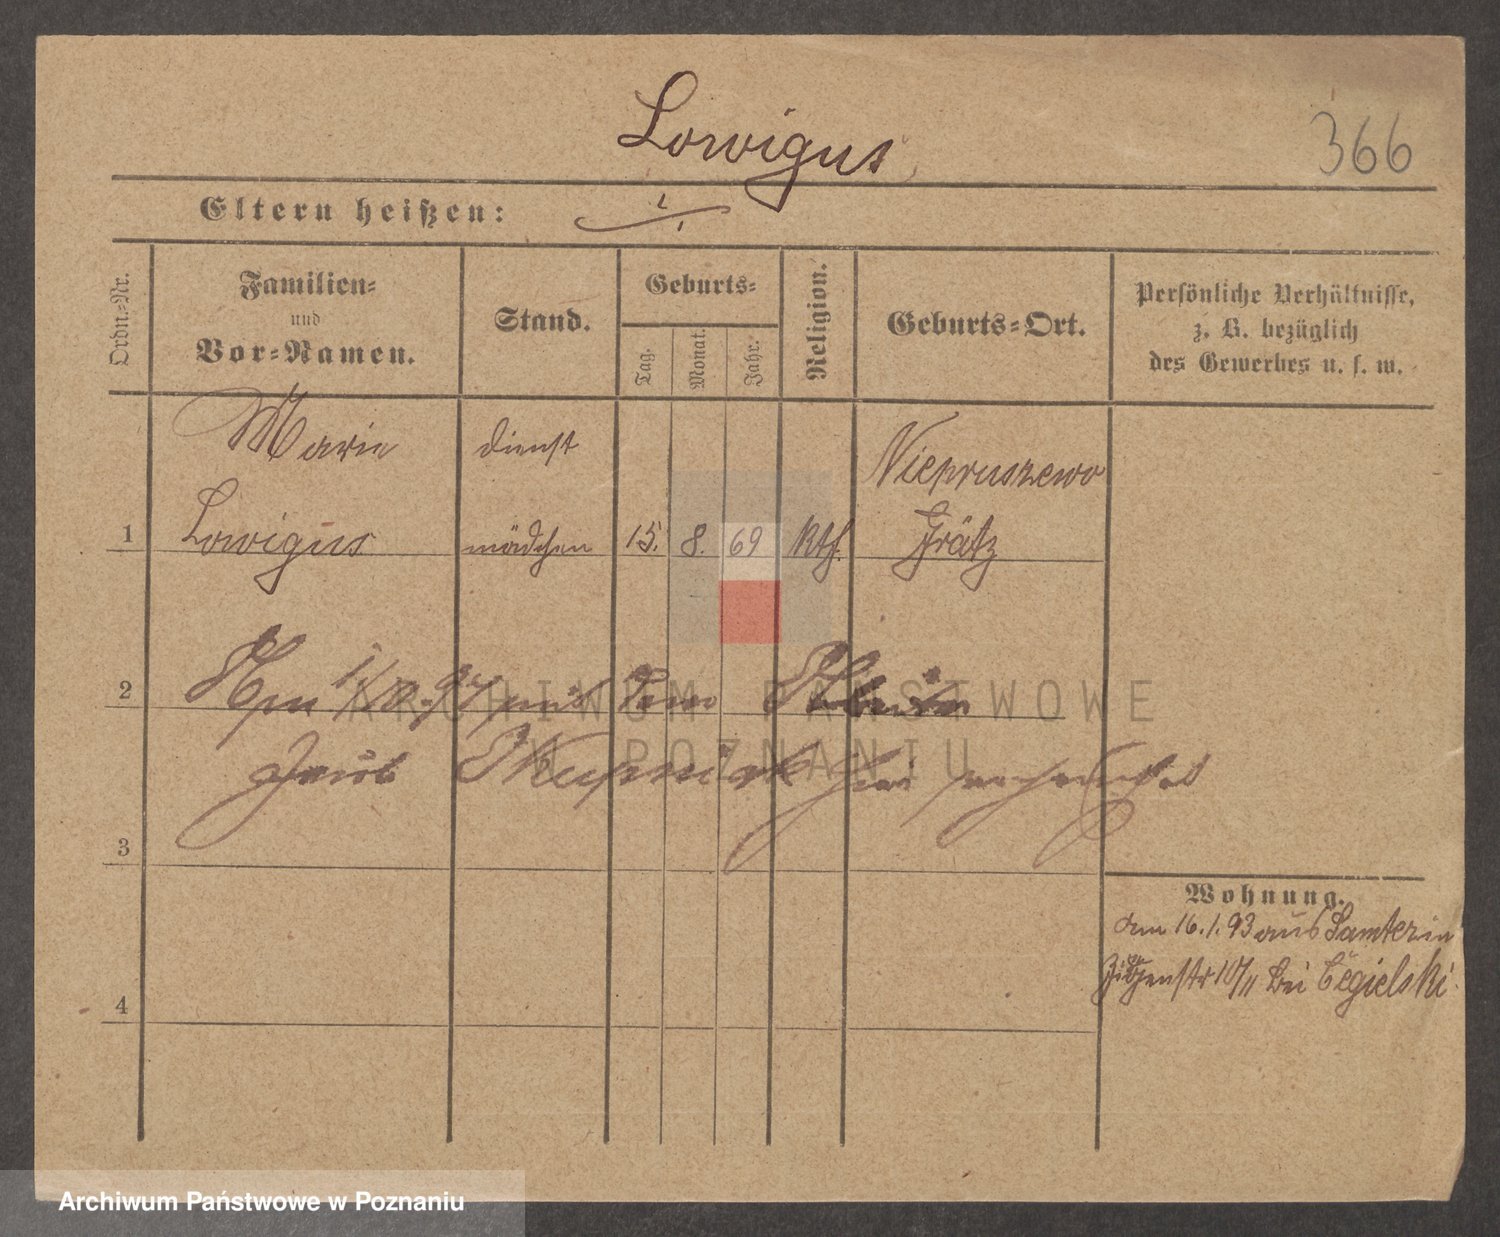 Lowigus
366
Eltern heißen:
Ordn.-Nr.
Familien-
und
Vor-Namen.
Stand.
Geburts-
Tag.
Monat.
Jahr.
Religion.
Geburts-Ort.
Persönliche Verhältnisse,
z. B. bezüglich
des Gewerbes u. s. w.
Marie dienst Niepruszewo
1 Lowigus mädchen 15. 8. 69 Kth. Grätz
2 Am mit dem
verheirathet
3
Wohnung.
am 16.1.93 aus Samter in
10/11 bei Cegielski
4
ARCHIWUM PAŃSTWOWE
W POZNANIU
Archiwum Państwowe w Poznaniu